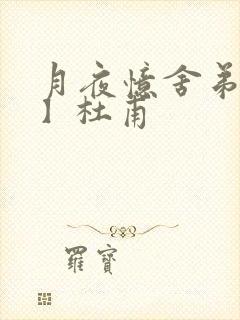 月夜憶舍弟
】杜甫
羅寶